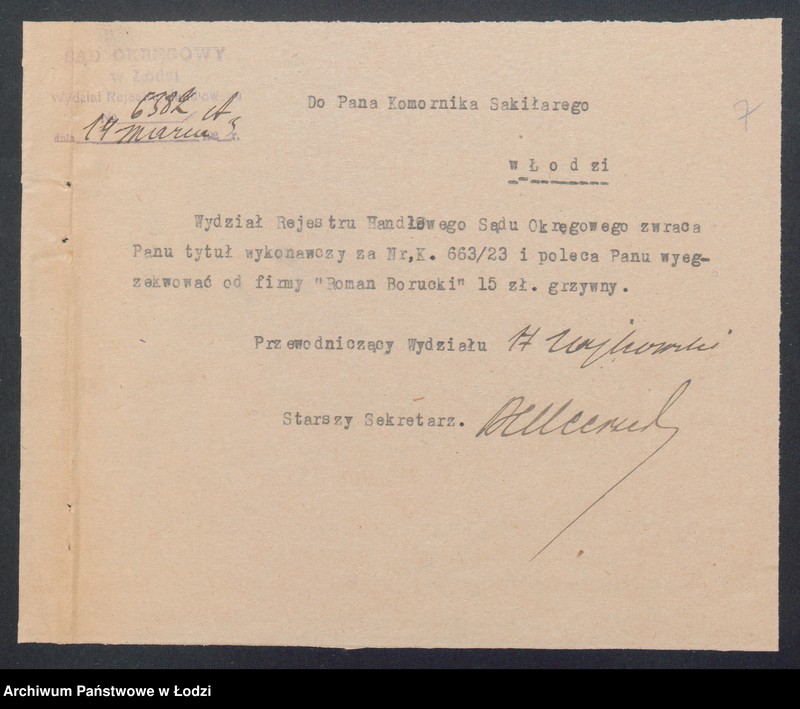 SĄD OKRĘGOWY
w Łodzi
Wydział Rejestru
6382 A
dnia 14 marca r.
7
Do Pana Komornika Sakiłarego
w Łodzi
Wydział Rejestru Handlowego Sądu Okręgowego zwraca
Panu tytuł wykonawczy za Nr,K. 663/23 i poleca Panu wyeg-
zekwować od firmy "Roman Borucki" 15 zł. grzywny.
Przewodniczący Wydziału
Starszy Sekretarz.
Archiwum Państwowe w Łodzi